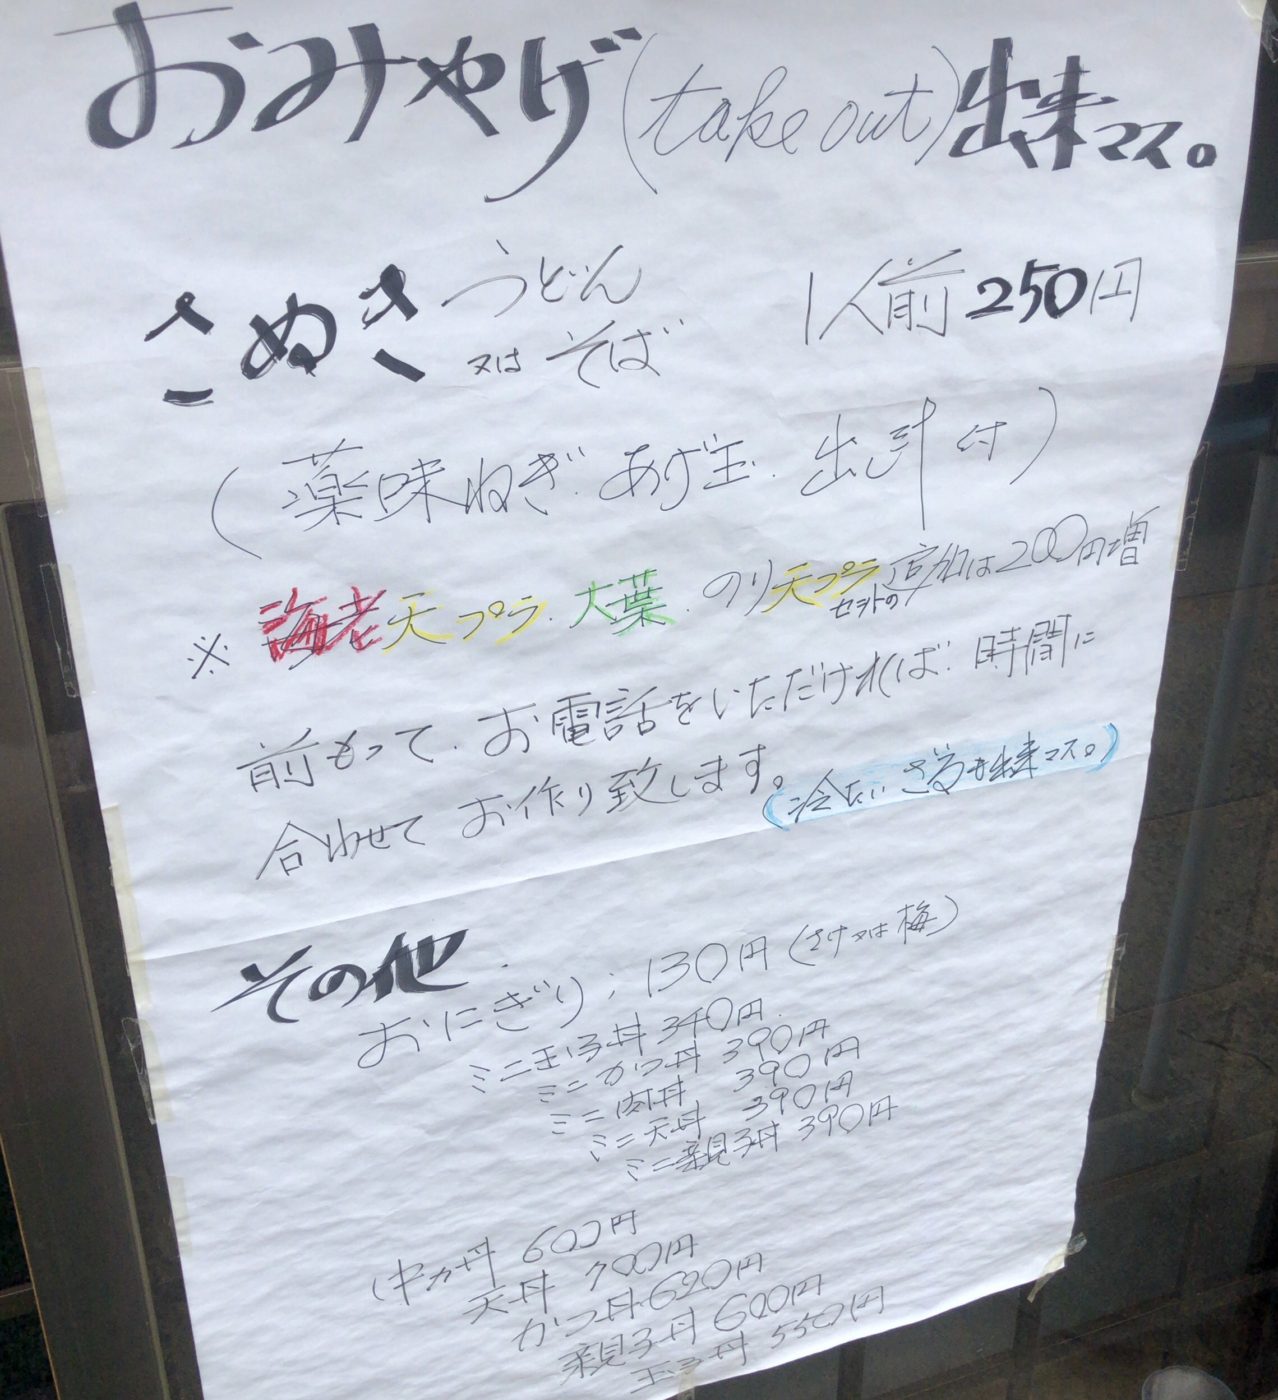 おみやげ(take out)出来マス。
さぬきうどん 1人前250円
又はそば
(薬味ねぎ.あげ玉.出し汁付)
※海老天プラ.大葉.のり天プラ追加は200円増
セットの
前もって.お電話をいただければ.時間に
合わせてお作り致します。(冷たいざるも出来マス。)
その他
おにぎり;130円(さけ又は梅)
ミニ玉子丼 340円
ミニかつ丼 390円
ミニ肉丼 390円
ミニ天丼 390円
ミニ親子丼 390円
中カ丼 600円
天丼 700円
かつ丼 620円
親子丼 600円
玉子丼 550円